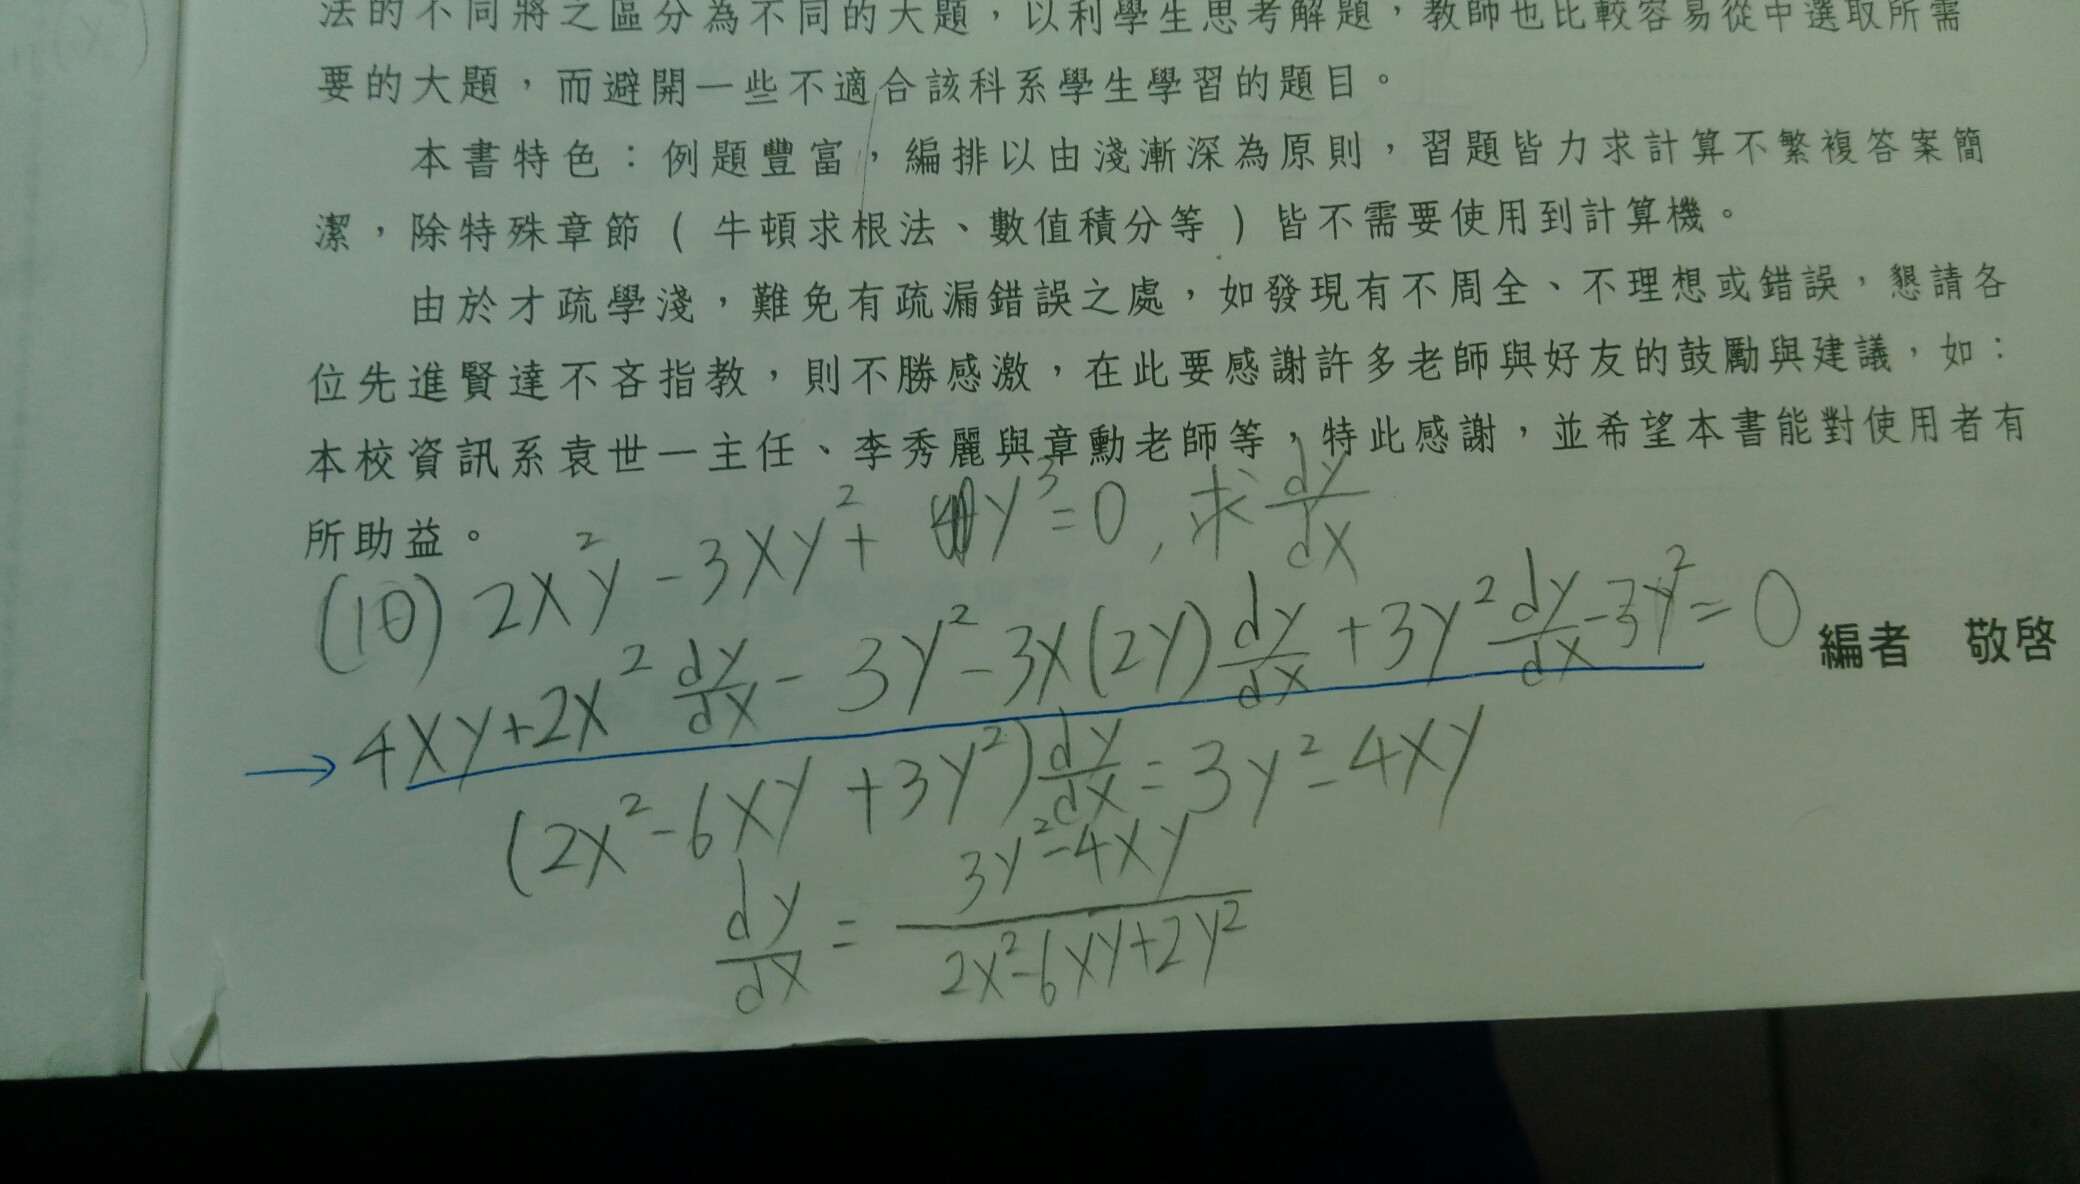 法的不同將之區分為不同的大題，以利學生思考解題，教師也比較容易從中選取所需
要的大題，而避開一些不適合該科系學生學習的題目。
本書特色：例題豐富，編排以由淺漸深為原則，習題皆力求計算不繁複答案簡
潔，除特殊章節（牛頓求根法、數值積分等）皆不需要使用到計算機。
由於才疏學淺，難免有疏漏錯誤之處，如發現有不周全、不理想或錯誤，懇請各
位先進賢達不吝指教，則不勝感激，在此要感謝許多老師與好友的鼓勵與建議，如：
本校資訊系袁世一主任、李秀麗與章勳老師等，特此感謝，並希望本書能對使用者有
所助益。
(10) 2x²y - 3xy² + y³ = 0, 求 dy/dx
→ 4xy + 2x² dy/dx - 3y² - 3x(2y) dy/dx + 3y² dy/dx - 3y² = 0
編者 敬啓
(2x² - 6xy + 3y²) dy/dx = 3y² - 4xy
dy/dx = (3y² - 4xy)/(2x² - 6xy + 2y²)